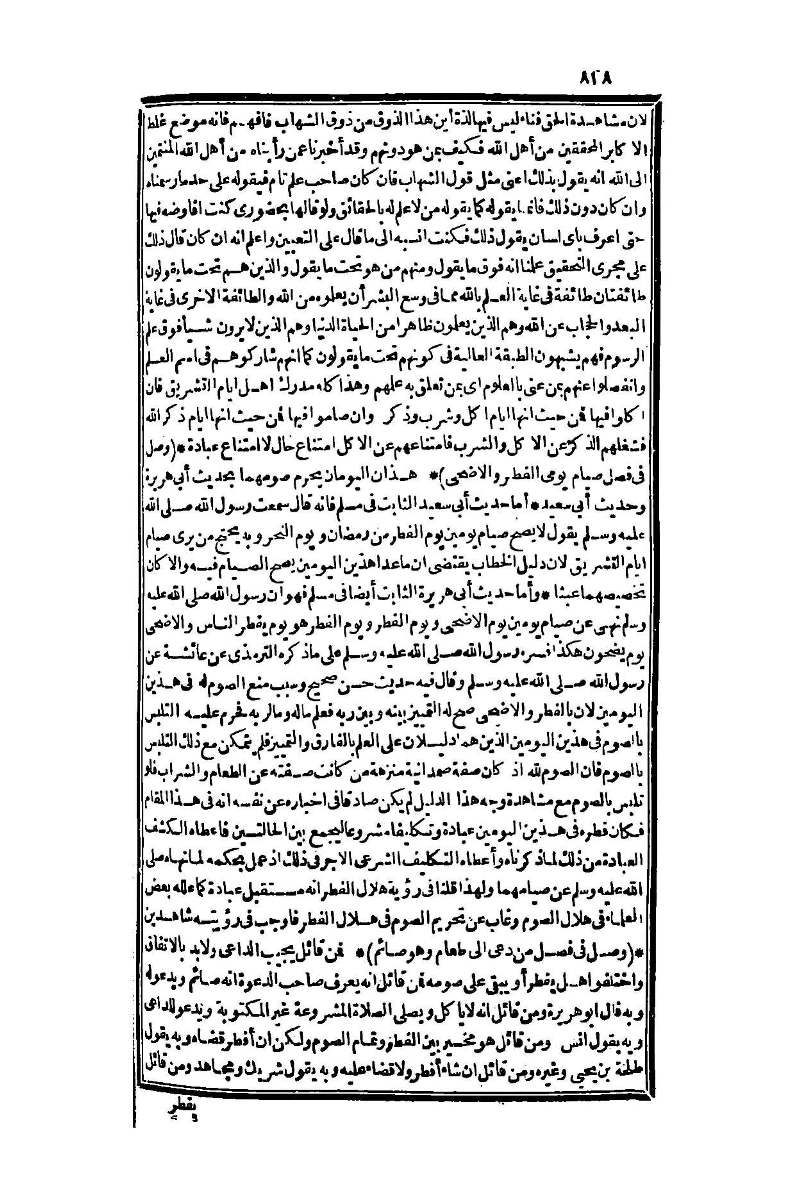 ٨٢٨
لان مشاهدة الحق فناء ليس فيها لذة أين هذا الذوق من ذوق الشهاب فافهم فانه موضع غلط
الا كابر المحققين من أهل الله فكيف بمن هو دونهم وقد أخبرنا عمن رأيناه من أهل الله المنتمين
الى الله انه يقول بذلك اعنى مثل قول الشهاب فان كان صاحب علم تام فيقوله على حد مارسمناه
وان كان دون ذلك فانما يقوله كما يقوله من لا علم له بالحقائق ولو قالها بحضورى كنت افاوضه فيها
حتى اعرف باى لسان يقول ذلك فكنت انسبه الى ما قال على التعيين واعلم انه ان كان قال ذلك
على مجرى التحقيق علمنا انه فوق ما يقول ومنهم من هو تحت ما يقول والذين هم تحت ما يقولون
طائفتان طائفة فى غاية العلم بالله مما فى وسع البشر أن يعلموه من الله والطائفة الاخرى فى غاية
البعد والحجاب عن الله وهم الذين يعلمون ظاهرا من الحياة الدنيا وهم الذين لا يرون شيأ فوق علم
الرسوم فهم يشبهون الطبقة العالية فى كونهم تحت ما يقولون كما انهم شاركوهم فى اسم العلم
وانفصلوا عنهم بمن عنى بالعلوم اى بمن تعلق به علمهم وهذا كله مدرك اهل ايام التشريق فان
اكلوا فيها فمن حيث انها ايام اكل وشرب وذكر وان صاموا فيها فمن حيث انها ايام ذكر الله
فشغلهم الذكر عن الاكل والشرب فامتناعهم عن الاكل امتناع حال لا امتناع عبادة *(وصل
فى فصل صيام يومى الفطر والاضحى)* هذان اليومان يحرم صومهما بحديث أبى هريرة
وحديث أبى سعيد * أما حديث أبى سعيد الثابت فى مسلم فانه قال سمعت رسول الله صلى الله
عليه وسلم يقول لا يصح صيام يومين يوم الفطر من رمضان ويوم النحر وبه يحتج من يرى صيام
ايام التشريق لان دليل الخطاب يقتضى ان ماعدا هذين اليومين يصح الصيام فيه والا كان
تخصيصهما عبثا * وأما حديث أبى هريرة الثابت أيضا فى مسلم فهو ان رسول الله صلى الله عليه
وسلم نهى عن صيام يومين يوم الاضحى ويوم الفطر ويوم الفطر هو يوم يفطر الناس والاضحى
يوم يضحون هكذا فسره رسول الله صلى الله عليه وسلم على ماذكره الترمذى عن عائشة عن
رسول الله صلى الله عليه وسلم وقال فيه حديث حسن صحيح وسبب منع الصوم له فى هذين
اليومين لان بالفطر والاضحى صح له التمييز بينه وبين ربه فعلم ماله وما لربه فحرم عليه التلبس
بالصوم فى هذين اليومين الذين هما دليلان على العلم بالفارق والتمييز فلم يتمكن مع ذلك التلبس
بالصوم فان الصوم لله اذ كان صفة صمدانية منزهة من كانت صفته عن الطعام والشراب فلو
تلبس بالصوم مع مشاهدة وجه هذا الدليل لم يكن صادقا فى اخباره عن نفسه انه فى هذا المقام
فكان فطره فى هذين اليومين عبادة وتكليفا مشروعا ليجمع بين الحالتين فاعطاه الكشف
العبادة من ذلك لما ذكرناه وأعطاه التكليف الشرعى الاجر فى ذلك اذ عمل بحكمه لما نهاه صلى
الله عليه وسلم عن صيامهما ولهذا قلنا فى رؤية هلال الفطر انه مستقبل عبادة كما علله بعض
العلماء فى هلال الصوم وغاب عن تحريم الصوم فى هلال الفطر فاوجب فى رؤيته شاهدين
*(وصل فى فصل من دعى الى طعام وهو صائم)* فمن قائل يجيب الداعى ولابد بالاتفاق
واختلفوا هل يفطر أو يبقى على صومه فمن قائل انه يعرف صاحب الدعوة انه صائم ويدعو له
وبه قال ابو هريرة ومن قائل انه لا ياكل ويصلى الصلاة المشروعة غير المكتوبة ويدعو للداعى
وبه يقول انس ومن قائل هو مخير بين الفطر وتمام الصوم ولكن ان أفطر قضاه وبه يقول
طلحة بن يحيى وغيره ومن قائل ان شاء أفطر ولا قضاء عليه وبه يقول شريك ومجاهد ومن قائل
يفطر